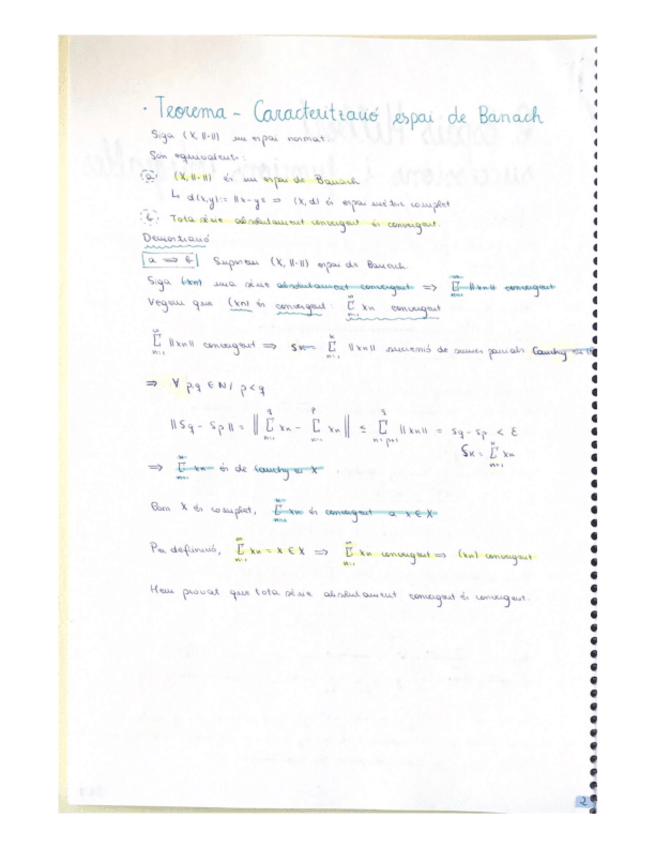 · Teorema - Caracterització espai de Banach
Siga (X, ||·||) un espai normat.
Són equivalents:
(a) (X, ||·||) és un espai de Banach
↳ d(x,y) := ||x-y|| ⇒ (X, d) és espai mètric complet
(b) Tota sèrie absolutament convergent és convergent.
Demostració
a ⇒ b Suposem (X, ||·||) espai de Banach.
Siga (xn) una sèrie absolutament convergent ⇒ ∑_{n=1}^{∞} ||xn|| convergent
Vegam que (xn) és convergent: ∑_{n=1}^{∞} xn convergent
∑_{n=1}^{∞} ||xn|| convergent ⇒ sk = ∑_{n=1}^{k} ||xn|| successió de sumes parcials Cauchy en
⇒ ∀ p,q ∈ N / p<q
||Sq - Sp|| = || ∑_{n=1}^{q} xn - ∑_{n=1}^{p} xn || ≤ ∑_{n=p+1}^{q} ||xn|| = sq - sp < ε
Sk = ∑_{n=1}^{k} xn
⇒ ∑_{n=1}^{∞} xn és de Cauchy en X
Com X és complet, ∑_{n=1}^{∞} xn és convergent a x ∈ X
Per definició, ∑_{n=1}^{∞} xn = x ∈ X ⇒ ∑_{n=1}^{∞} xn convergent ⇒ (xn) convergent
Hem provat que tota sèrie absolutament convergent és convergent.
2